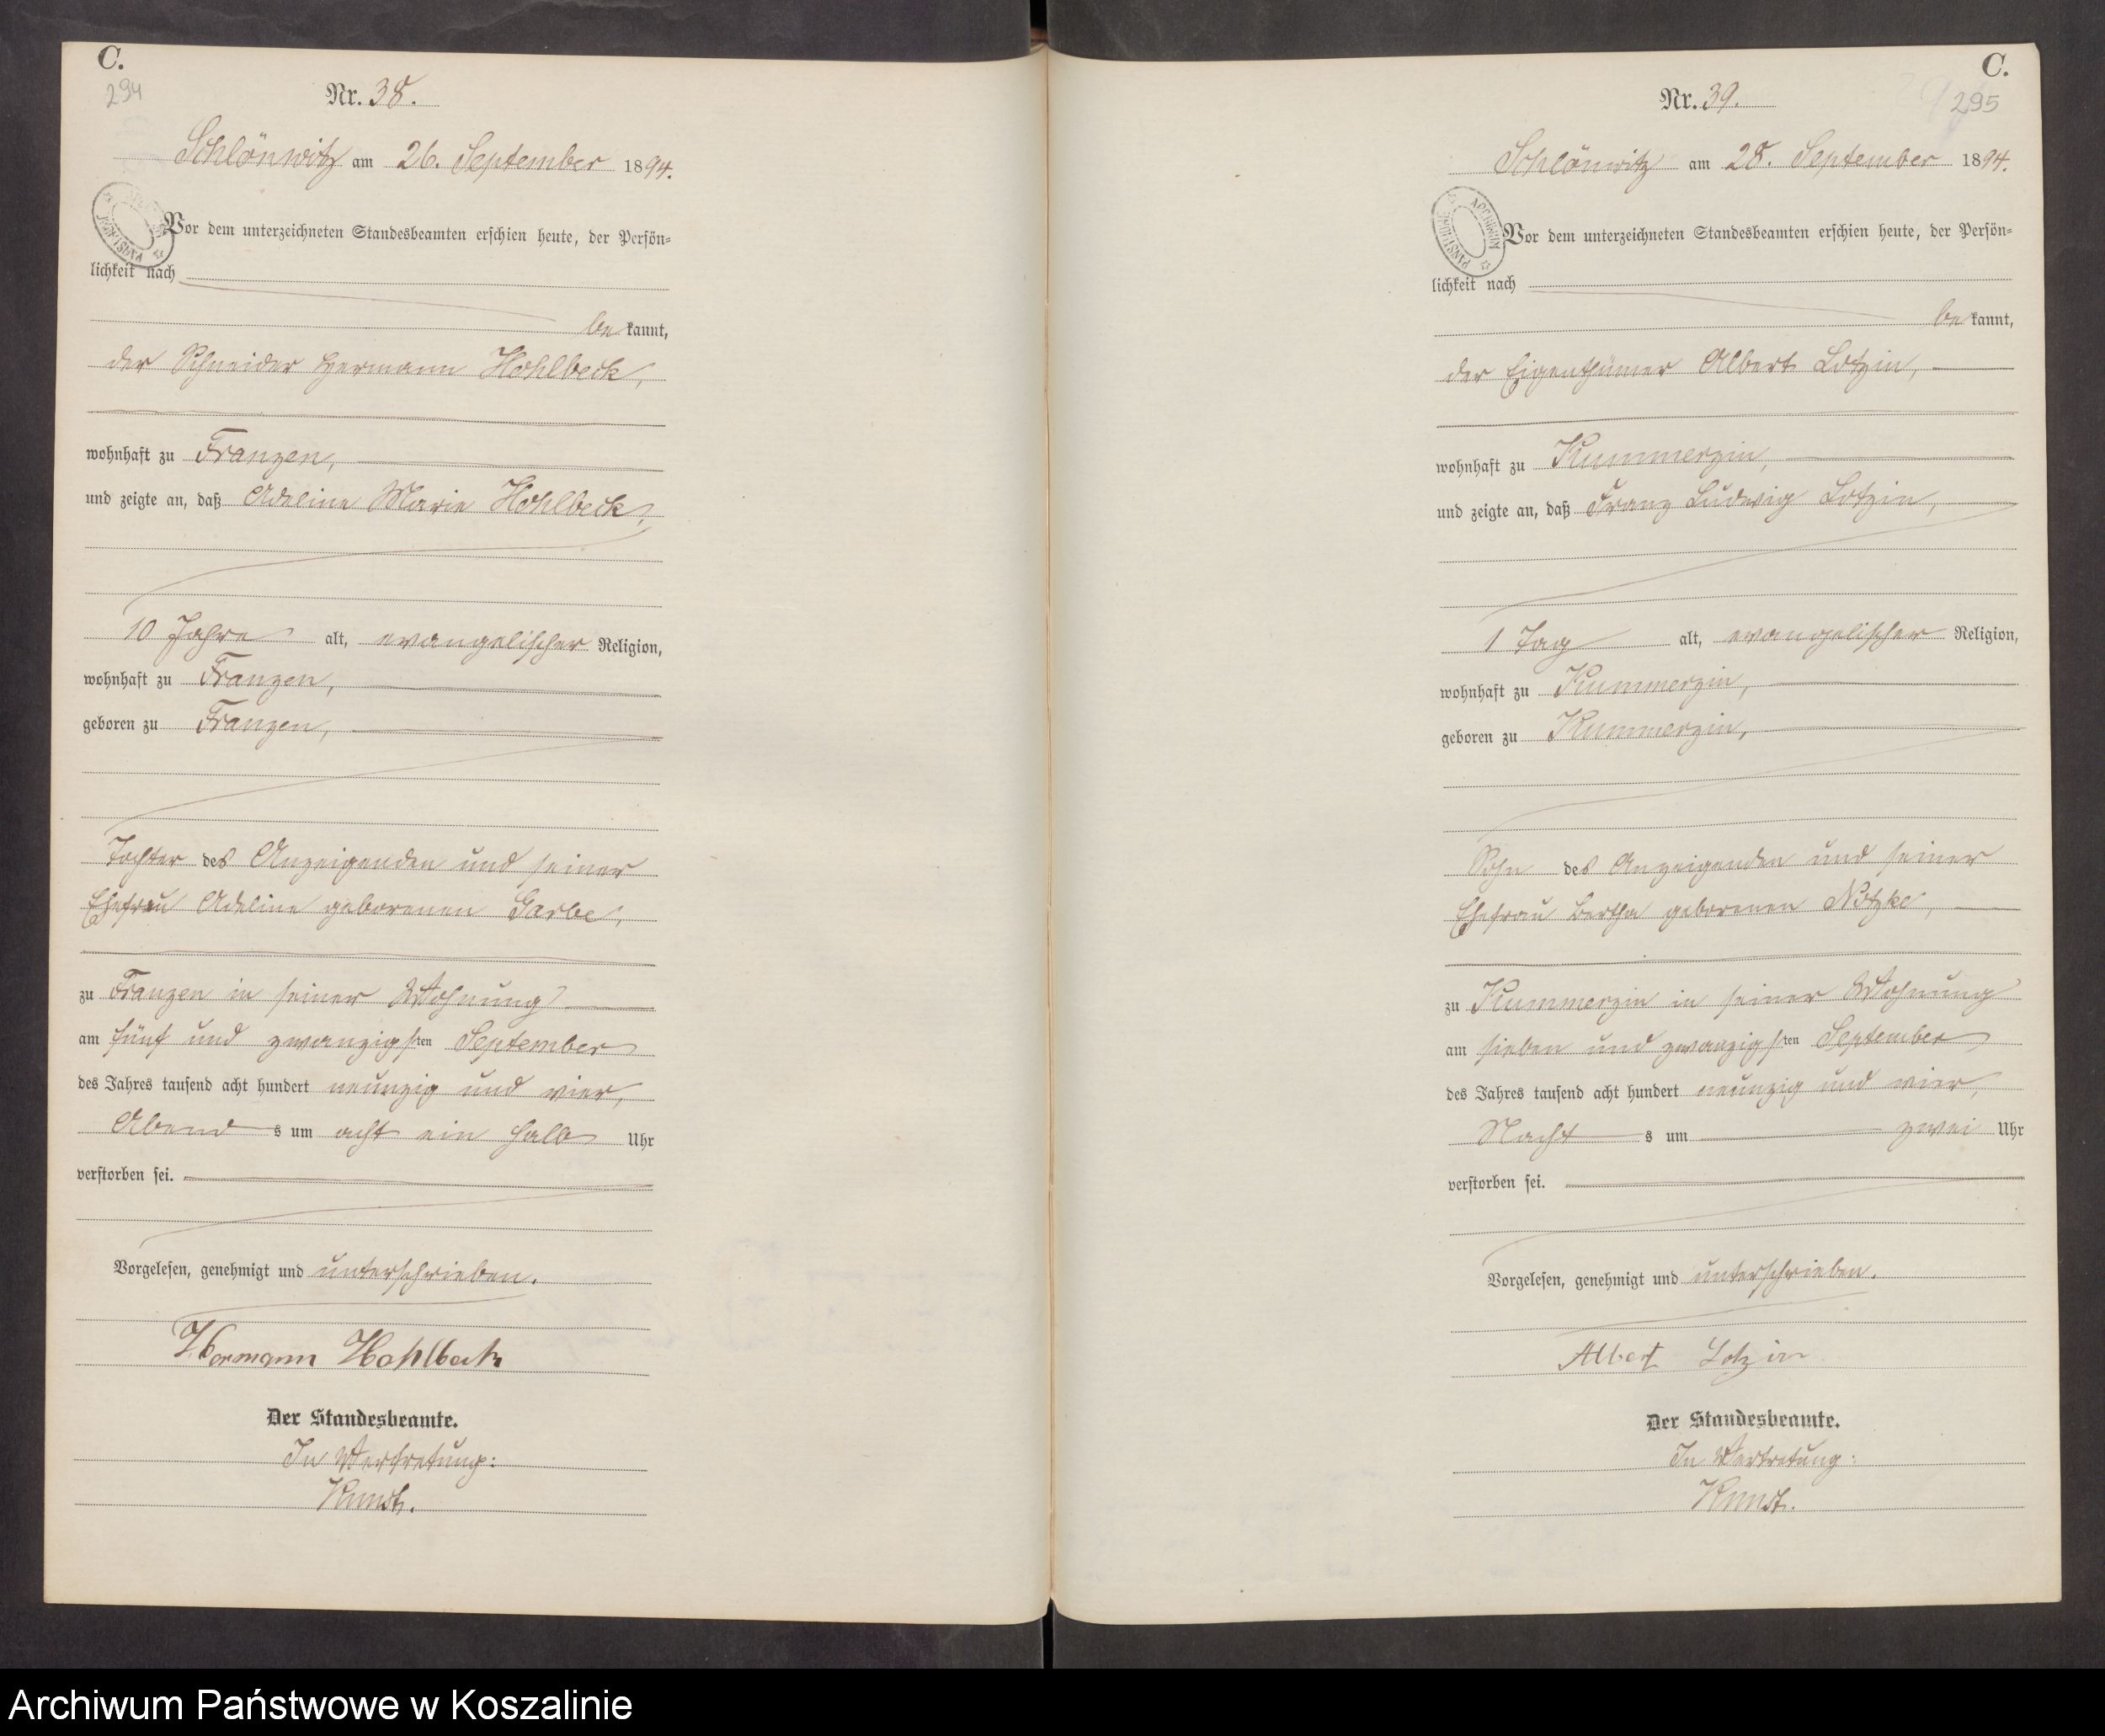 C.
294
Nr. 38.
Schlönwitz am 26. September 1894.
Vor dem unterzeichneten Standesbeamten erschien heute, der Persön-
lichkeit nach
be kannt,
der Schneider Hermann Hohlbeck,
wohnhaft zu Franzen,
und zeigte an, daß Adeline Marie Hohlbeck,
10 Jahre alt, evangelischer Religion,
wohnhaft zu Franzen,
geboren zu Franzen,
Tochter des Anzeigenden und seiner
Ehefrau Adeline geborenen Garbe,
zu Franzen in seiner Wohnung
am fünf und zwanzigsten September
des Jahres tausend acht hundert neunzig und vier,
Abend s um acht ein halb Uhr
verstorben sei.
Vorgelesen, genehmigt und unterschrieben.
Hermann Hohlbeck
Der Standesbeamte.
In Vertretung:
C.
295
Nr. 39.
Schlönwitz am 28. September 1894.
ARCHIWUM PAŃSTWOWE
Vor dem unterzeichneten Standesbeamten erschien heute, der Persön-
lichkeit nach
be kannt,
der Eigenthümer Albert Lotzin,
wohnhaft zu Kummerzin,
und zeigte an, daß Franz Ludwig Lotzin,
1 Tag alt, evangelischer Religion,
wohnhaft zu Kummerzin,
geboren zu Kummerzin,
Sohn des Anzeigenden und seiner
Ehefrau Bertha geborenen Nitzke,
zu Kummerzin in seiner Wohnung
am sieben und zwanzigsten September
des Jahres tausend acht hundert neunzig und vier,
Nacht s um zwei Uhr
verstorben sei.
Vorgelesen, genehmigt und unterschrieben.
Albert Lotzin
Der Standesbeamte.
In Vertretung:
Archiwum Państwowe w Koszalinie